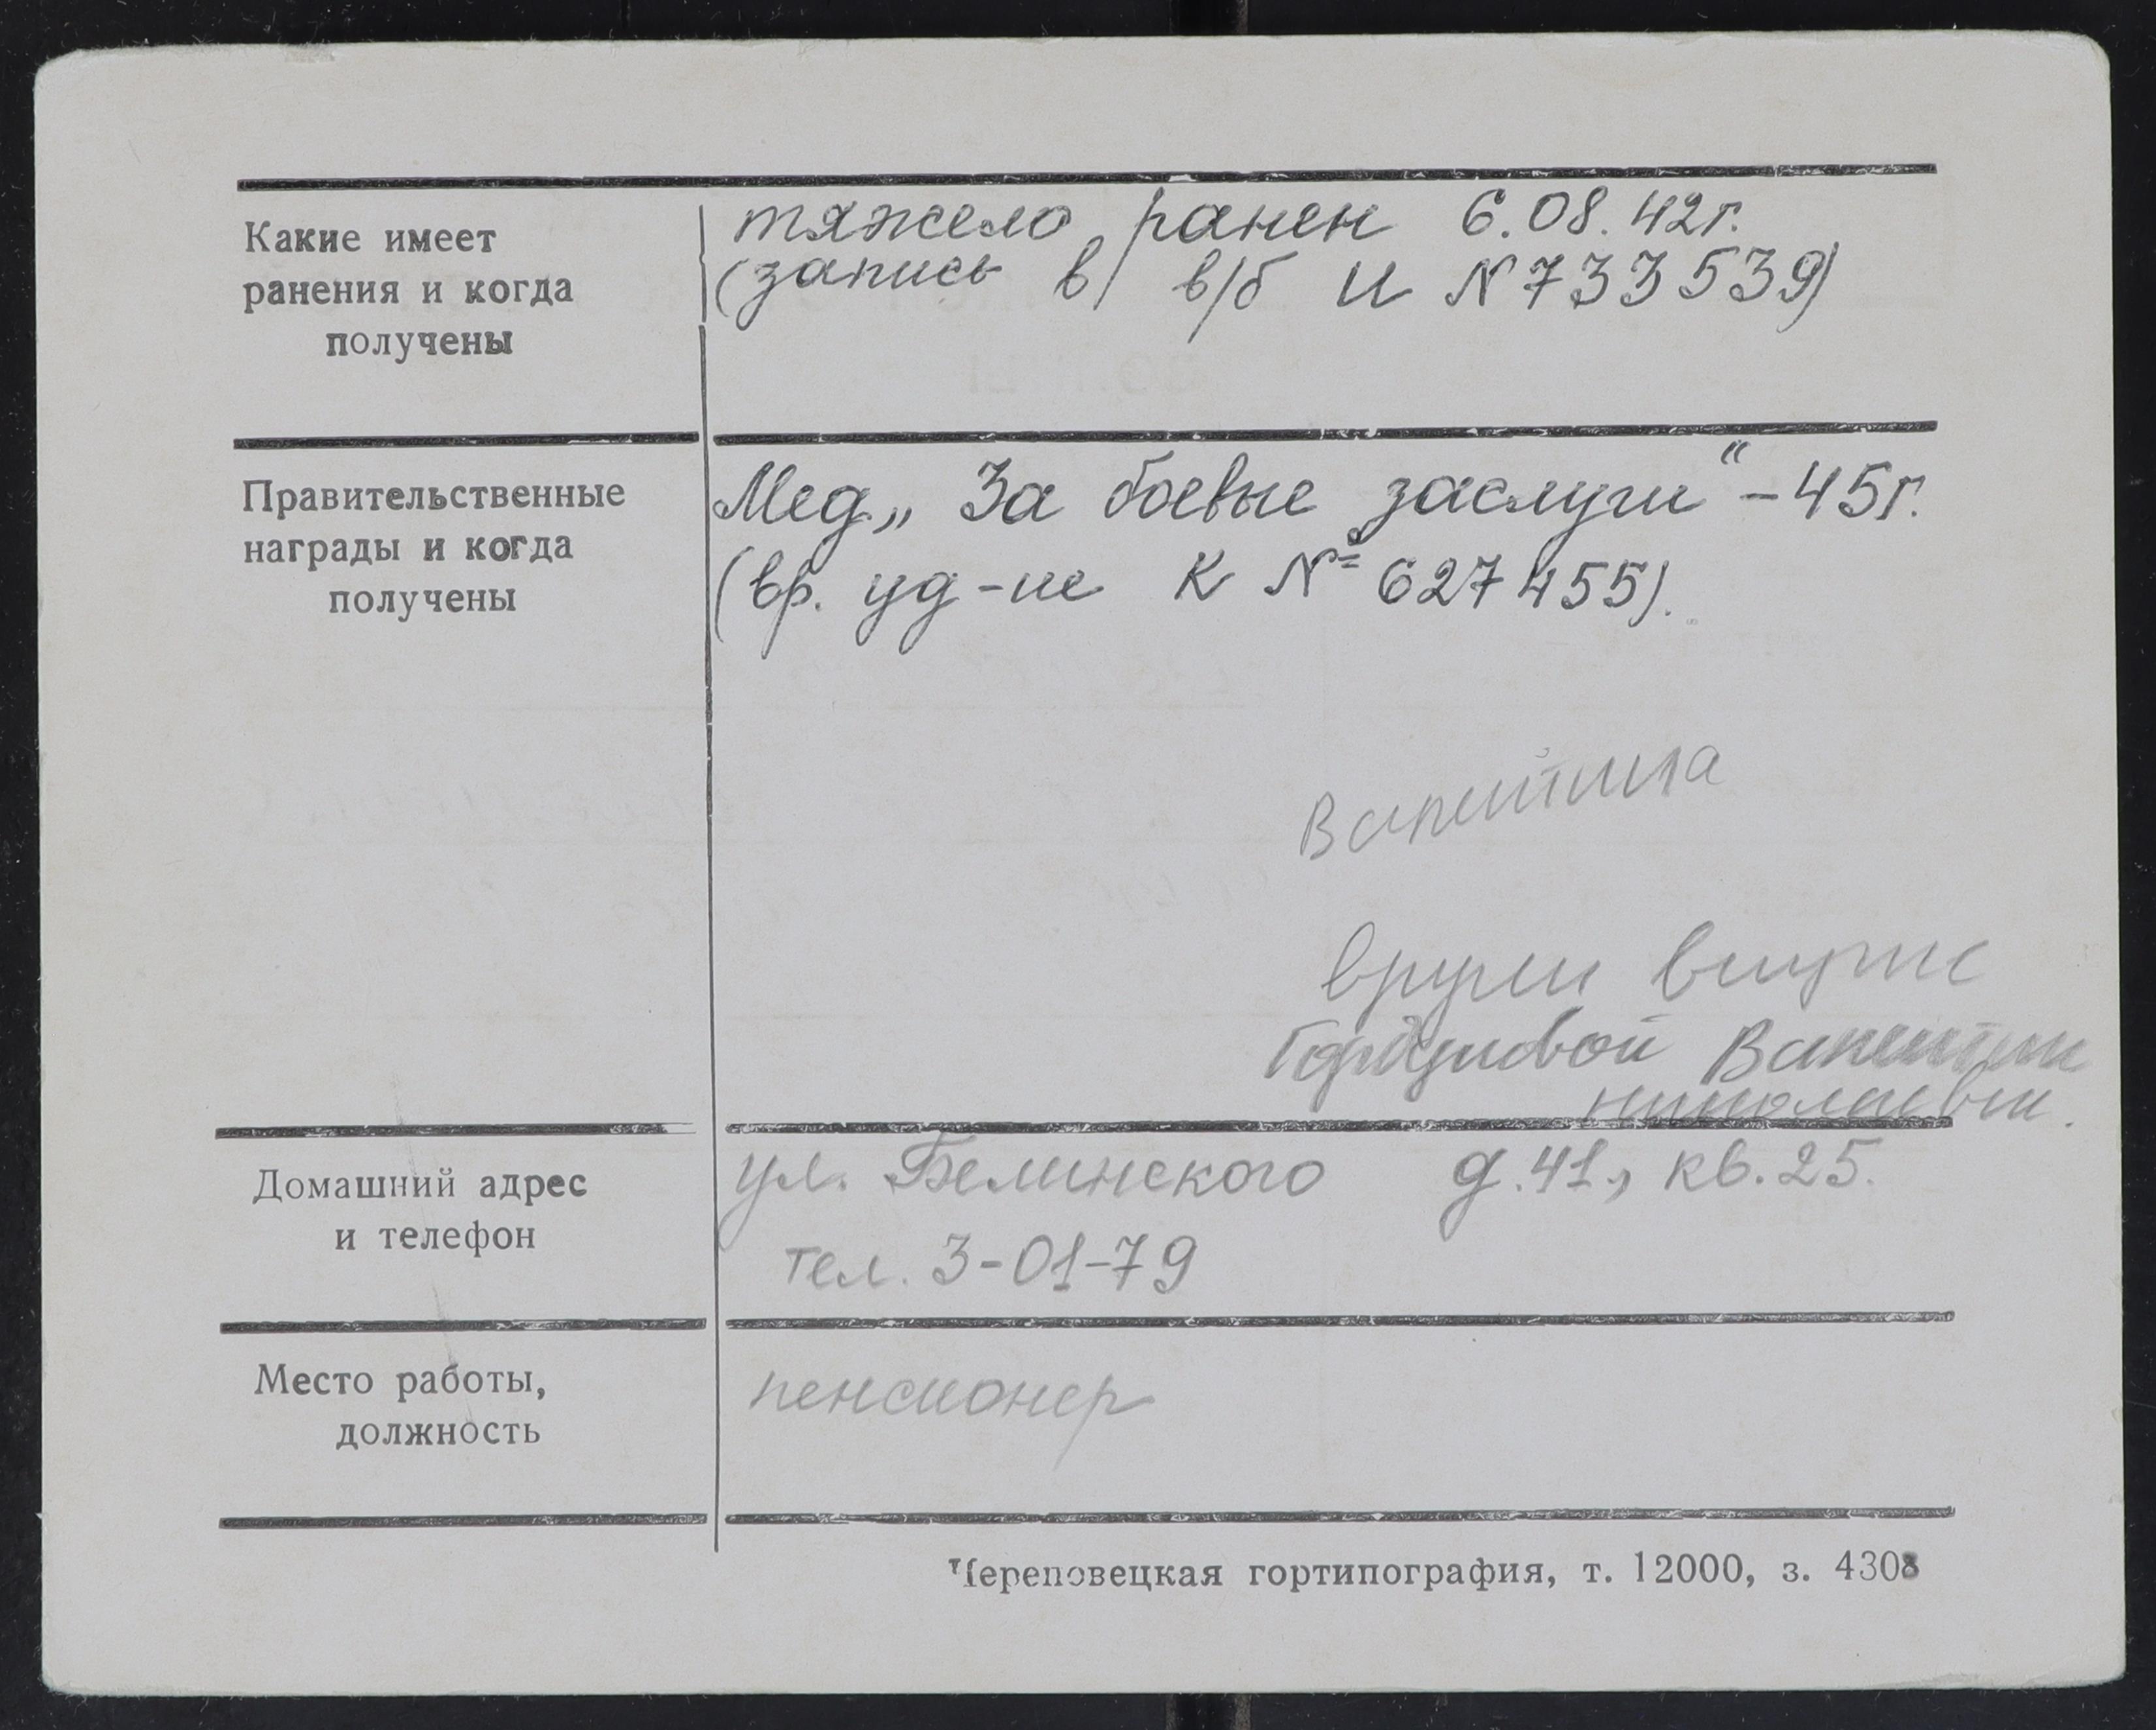 Какие имеет
ранения и когда
получены
тяжело ранен 6.08.42г.
(запись в в/б И N733539)
Правительственные
награды и когда
получены
Мед „За боевые заслуги“ – 45г.
(вр. уд-ие К № 627455).
Валентина
вручен внучке
Валентине
Николаевне.
Домашний адрес
и телефон
ул. Белинского д.41, кв.25.
тел. 3-01-79
Место работы,
должность
пенсионер
Череповецкая гортипография, т. 12000, з. 4308